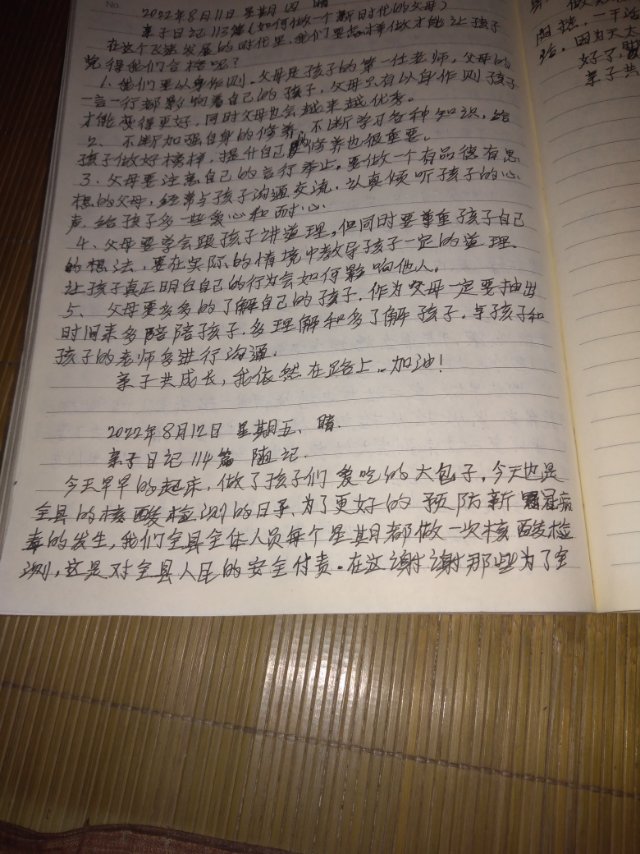 No.
2022年8月11日 星期四 晴
亲子日记113篇(如何做一个新时代的父母)
在这个飞速发展的时代里,我们要怎样做才能让孩子
觉得我们合格呢?
1、我们要以身作则,父母是孩子的第一任老师,父母的
一言一行都影响着自己的孩子,父母只有以身作则孩子
才能变得更好,同时父母也会越来越优秀。
2、不断加强自身的修养,不断学习各种知识,给
孩子做好榜样,提升自己的修养也很重要。
3、父母要注意自己的言行举止。要做一个有品德有思
想的父母,经常与孩子沟通交流,认真倾听孩子的心
声,给孩子多一些爱心和耐心。
4、父母要学会跟孩子讲道理,但同时要尊重孩子自己
的想法,要在实际的情境中教导孩子一定的道理。
让孩子真正明白自己的行为会如何影响他人。
5、父母要多多的了解自己的孩子,作为父母一定要抽出
时间来多陪陪孩子,多理解和多了解孩子,与孩子和
孩子的老师多进行沟通。
亲子共成长,我依然在路上..加油!
2022年8月12日 星期五、晴.
亲子日记114篇 随记.
今天早早的起床,做了孩子们爱吃的大包子,今天也是
全县的核酸检测的日子,为了更好的预防新冠病
毒的发生,我们全县全体人员每个星期都做一次核酸检
测,这是对全县人民的安全付责。在这谢谢那些为了全
做
因为天太
好了,
亲子共